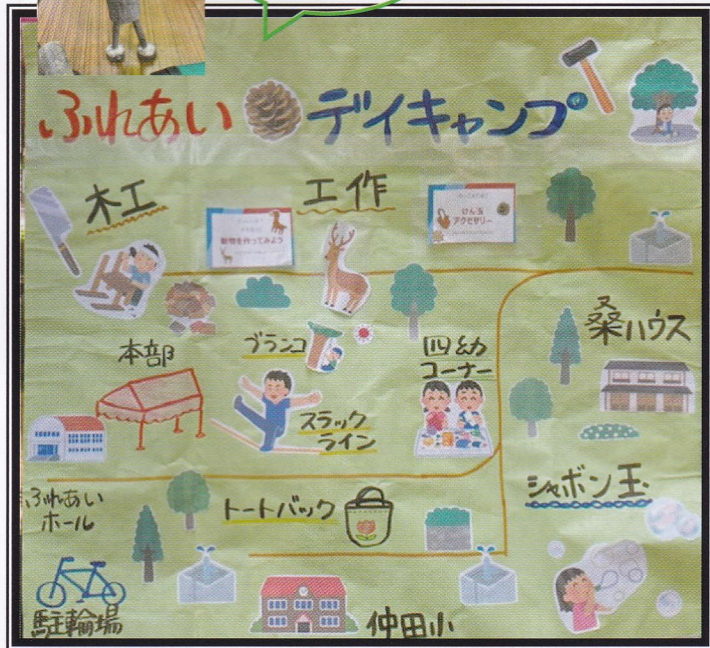 ふれあい デイキャンプ
木工
工作
動物を作ってみよう
けん玉
アクセサリー
本部
ブランコ
スラック
ライン
四幼
コーナー
桑ハウス
シャボン玉
ふれあい
ホール
トートバック
駐輪場
仲田小